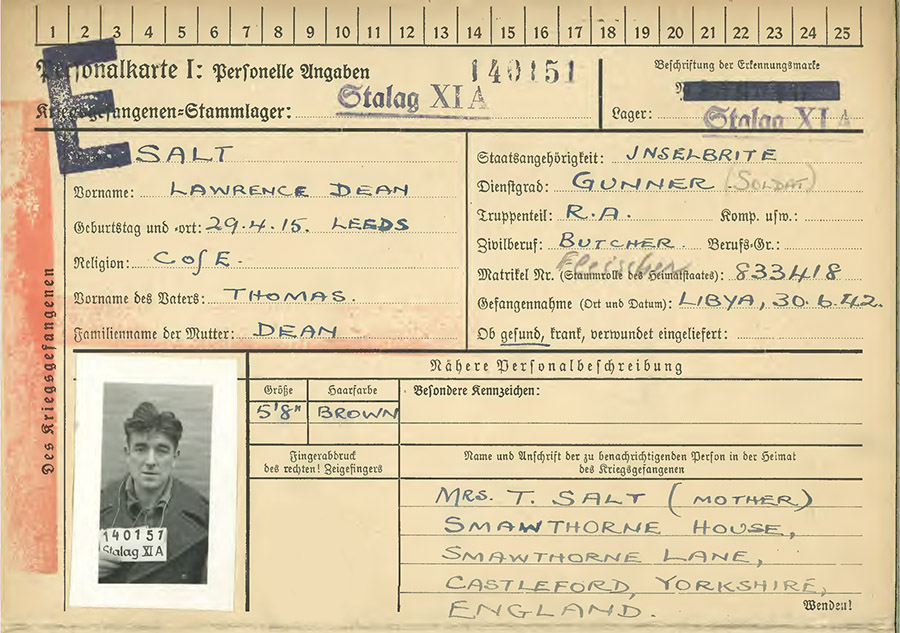 1 2 3 4 5 6 7 8 9 10 11 12 13 14 15 16 17 18 19 20 21 22 23 24 25
E
Personalkarte I: Personelle Angaben
140151
Beschriftung der Erkennungsmarke
Kriegsgefangenen-Stammlager: Stalag XI A
Lager: Stalag XI A
Des Kriegsgefangenen
SALT
Vorname: LAWRENCE DEAN
Geburtstag und -ort: 29.4.15. LEEDS
Religion: C of E.
Vorname des Vaters: THOMAS.
Familienname der Mutter: DEAN
Staatsangehörigkeit: INSELBRITE
Dienstgrad: GUNNER (SOLDAT)
Truppenteil: R.A. Komp. usw.:
Zivilberuf: BUTCHER. Berufs-Gr.:
Fleischer
Matrikel Nr. (Stammrolle des Heimatstaates): 833418
Gefangennahme (Ort und Datum): LIBYA, 30.6.42.
Ob gesund, krank, verwundet eingeliefert:
Nähere Personalbeschreibung
Größe Haarfarbe Besondere Kennzeichen:
5'8" BROWN
Fingerabdruck
des rechten! Zeigefingers
Name und Anschrift der zu benachrichtigenden Person in der Heimat
des Kriegsgefangenen
MRS. T. SALT (MOTHER)
SMAWTHORNE HOUSE,
SMAWTHORNE LANE,
CASTLEFORD, YORKSHIRE,
ENGLAND.
Wenden!
140151
Stalag XI A